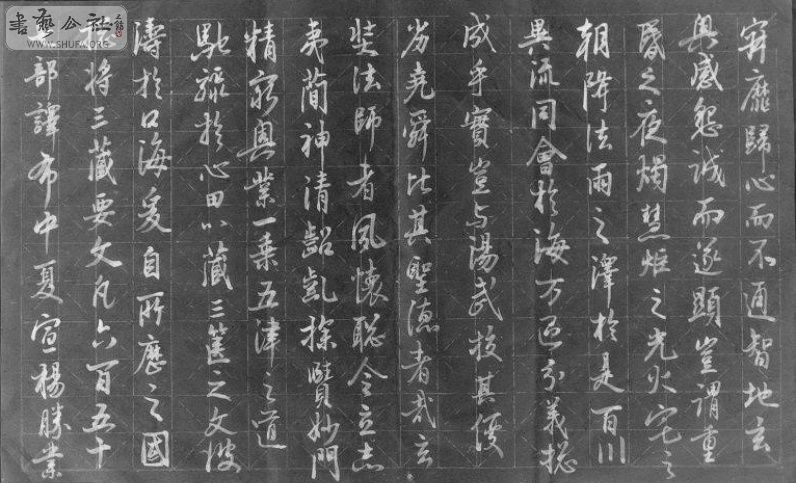 書藝公社
WWW.SHUFA.ORG
穽靡歸心而不通智地玄
奧感懇誠而遂顯豈謂重
昏之夜燭慧炬之光火宅之
朝降法雨之澤於是百川
異流同會於海万區分義揔
成乎實豈与湯武校其優
劣堯舜比其聖德者哉玄
奘法師者夙懷聡令立志
夷簡神清齠齔探賾妙門
精窮奧業一乘五律之道
馳驟於心田八藏三篋之文波
濤於口海爰自所歷之國
將三藏要文凡六百五十
部譯布中夏宣揚勝業